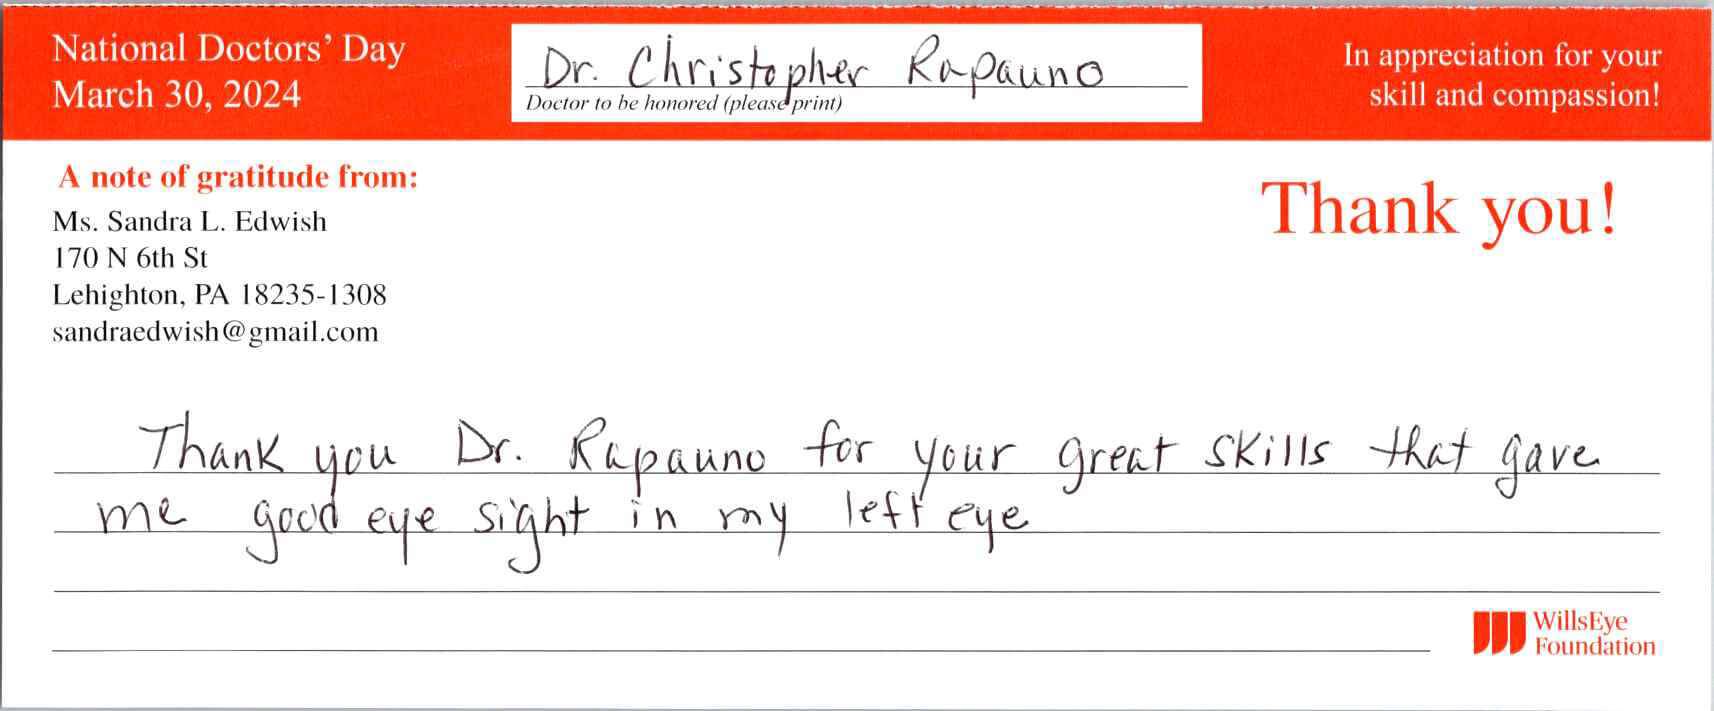 National Doctors' Day
March 30, 2024
Dr. Christopher Rapauno
Doctor to be honored (please print)
In appreciation for your
skill and compassion!
A note of gratitude from:
Ms. Sandra L. Edwish
170 N 6th St
Lehighton, PA 18235-1308
sandraedwish@gmail.com
Thank you!
Thank you Dr. Rapauno for your great skills that gave
me good eye sight in my left eye
WillsEye
Foundation